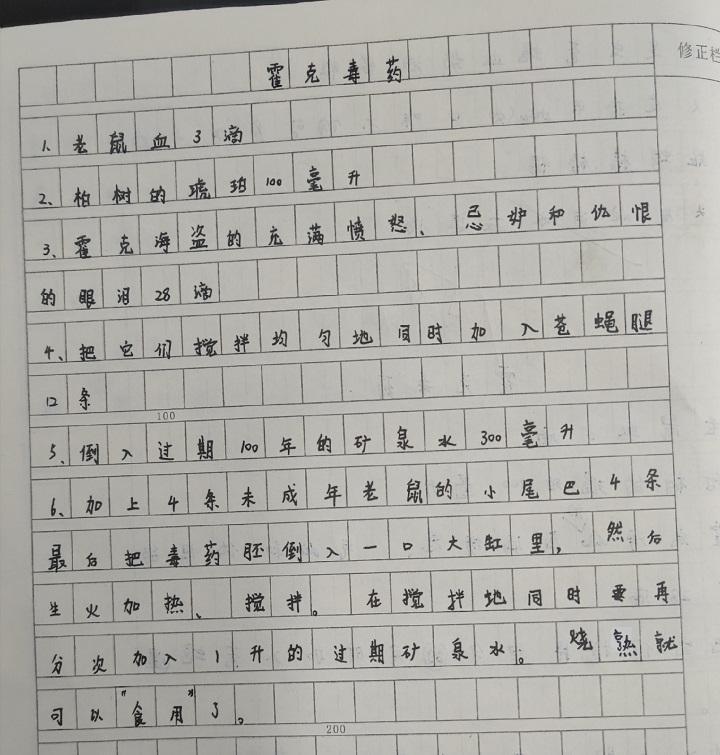 修正栏
霍克毒药
1、老鼠血3滴
2、柏树的琥珀100毫升
3、霍克海盗的充满愤怒、忌妒和仇恨
的眼泪28滴
4、把它们搅拌均匀地同时加入苍蝇腿
12条
100
5、倒入过期100年的矿泉水300毫升
6、加上4条未成年老鼠的小尾巴4条
最后把毒药胚倒入一口大缸里,然后
生火加热、搅拌。在搅拌地同时要再
分次加入1升的过期矿泉水。烧熟就
可以"食用"了。
200